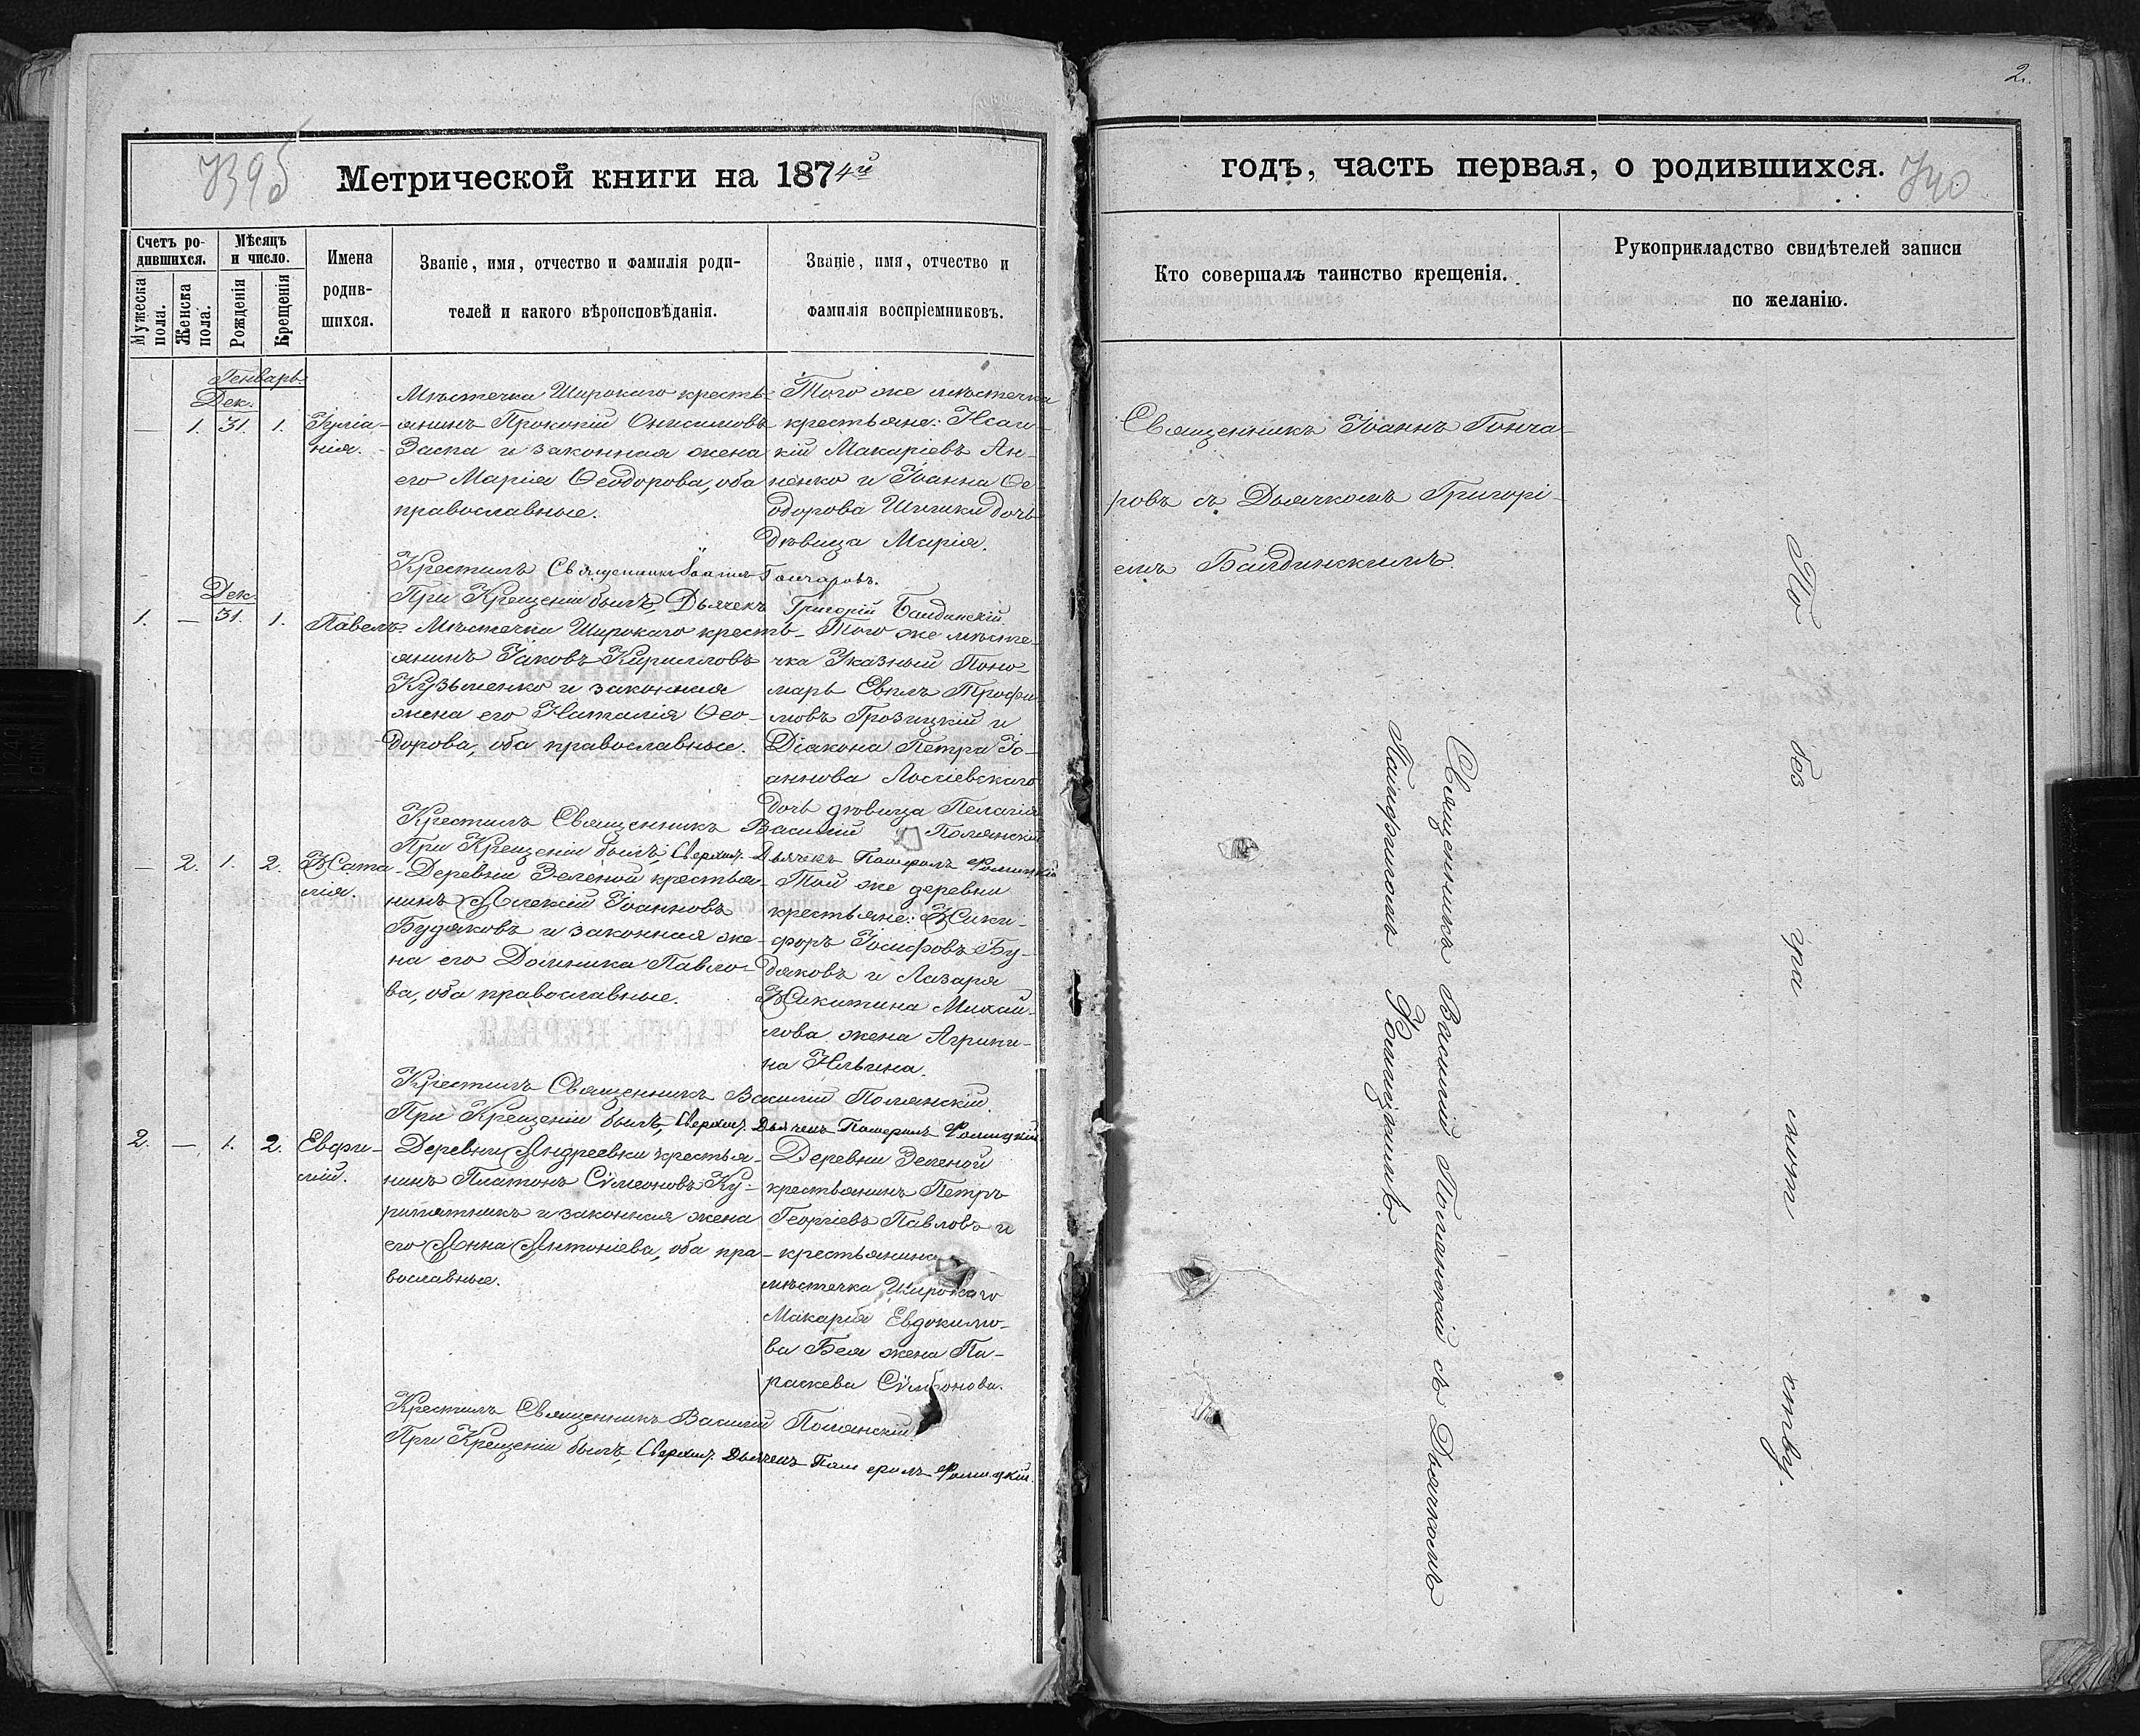 7395
Метрической книги на 1874й
Счетъ ро-
дившихся.
Мужеска пола.
Женска пола.
Мѣсяцъ
и число.
Рожденія
Крещенія
Имена
родив-
шихся.
Званіе, имя, отчество и фамилія роди-
телей и какого вѣроисповѣданія.
Званіе, имя, отчество и
фамилія воспріемниковъ.
Генварь
Дек.
— 1. 31. 1.
Іуліа-
нія.
Мѣстечка Широкаго кресть-
янинъ Прокопій Онисимовъ
Заспа и законная жена
его Марія Ѳеодорова, оба
православные.
Того же мѣстечка
крестьяне: Исаа-
кій Макаріевъ Ан-
ненко и Іоанна Ѳе-
одорова дочь
дѣвица Марія.
Крестилъ Священникъ Іоаннъ Гончаровъ.
При Крещеніи былъ, Дьячекъ Григорій
Дек.
1. — 31. 1.
Павелъ.
Мѣстечка Широкаго кресть-
янинъ Іаковъ Кирилловъ
Кузьменко и законная
жена его Наталія Ѳео-
дорова, оба православные.
Того же мѣсте-
чка Указный Поно-
марь Трофи-
мовъ Грозицкій и
Діакона Петра Іо-
аннова
дочь дѣвица Пелагія
Крестилъ Священникъ Василій Полянскій
При Крещеніи былъ, Сверхшт. Дьячекъ
— 2. 1. 2.
Ната-
лія.
Деревни Зеленой крестья-
нинъ Алексій Іоанновъ
Будяковъ и законная же-
на его Домника Павло-
ва, оба православные.
Той же деревни
крестьяне: Ники-
форъ Іосифовъ Бу-
дяковъ и Лазаря
Никитина Михай-
лова жена Агрипи-
на Ильина.
Крестилъ Священникъ Василій Полянскій.
При Крещеніи былъ, Сверхшт. Дьячекъ
2. — 1. 2.
Евфи-
мій.
Деревни Андреевки крестья-
нинъ Платонъ Сѵмеоновъ Ку-
рипятникъ и законная жена
его Анна Антоніева, оба пра-
вославные.
Деревни Зеленой
крестьянинъ Петръ
Георгіевъ Павловъ и
крестьянина
мѣстечка Широкаго
Макарія Евдокимо-
ва Бея жена Па-
раскева Сѵмеонова.
Крестилъ Священникъ Василій Полянскій
При Крещеніи былъ, Сверхшт. Дьячекъ
2.
годъ, часть первая, о родившихся.
740
Кто совершалъ таинство крещенія.
Рукоприкладство свидѣтелей записи
по желанію.
Священникъ Іоаннъ Гонча-
ровъ съ Дьячкомъ Григорі-
емъ
Священникъ Василій Полянскій съ Дьячкомъ
По без гра мот ству.